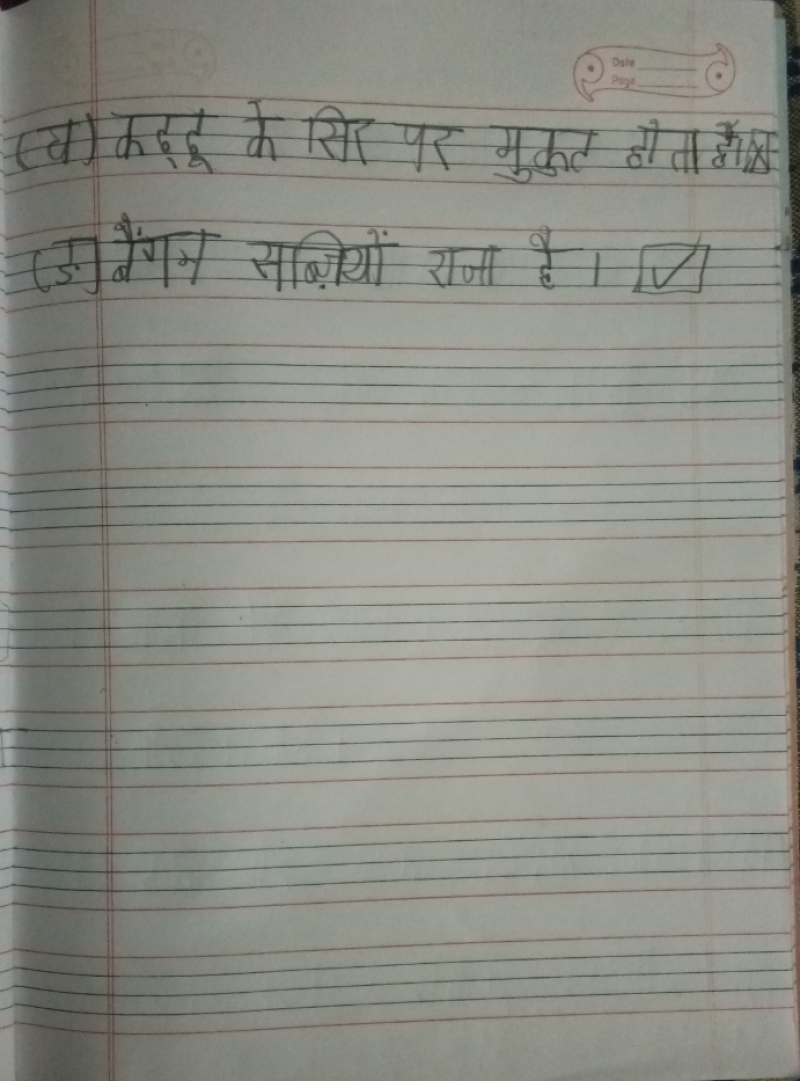 Date
Page
(घ) कद्दू के सिर पर मुकुट होता है। ☒
(ङ) बैंगन सब्ज़ियों राजा है । ☑